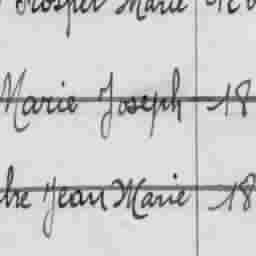 Prosper Marie
Marie Joseph 18
dre Jean Marie 18